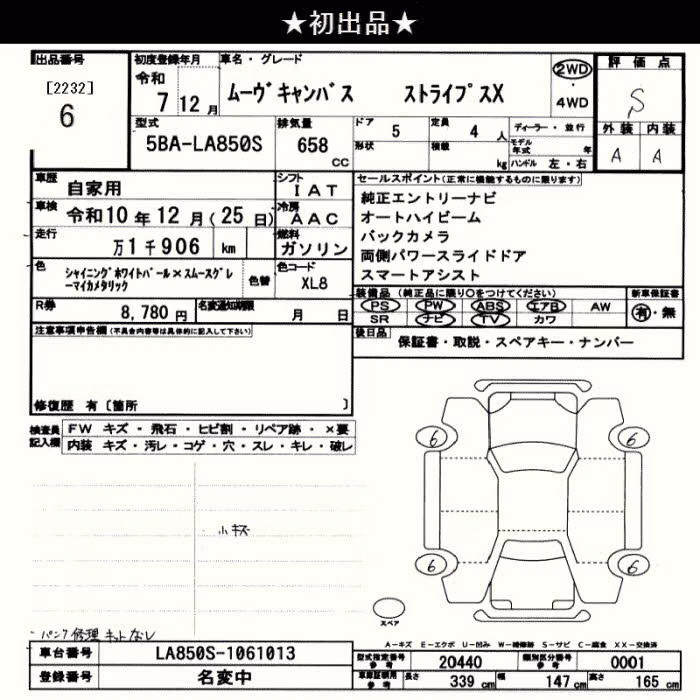 ★初出品★
出品番号
[2232]
6
初度登録年月
令和
7 12 月
車名・グレード
ムーヴキャンバス ストライプスX
2WD
・
4WD
評価点
S
外装 内装
A A
型式
5BA-LA850S
排気量
658
CC
ドア
形状
5
定員 4 人
積載 kg
ディーラー・並行
モデル年式 年
ハンドル 左・右
車歴
自家用
シフト
IAT
車検
令和10年12月(25日)
冷房
AAC
走行
万1千906 km
燃料
ガソリン
色
シャイニングホワイトパール×スムースグレ
ーマイカメタリック
色替
色コード
XL8
R券
8,780円
名変通知期限
月 日
セールスポイント(正常に機能するものに限ります)
純正エントリーナビ
オートハイビーム
バックカメラ
両側パワースライドドア
スマートアシスト
装備品(純正品に限り○をつけてください)
新車保証書
PS PW ABS エアB AW
SR ナビ TV カワ
有・無
後日品
保証書・取説・スペアキー・ナンバー
注意事項申告欄(不具合内容等は具体的に記入して下さい)
修復歴 有〔箇所 〕
検査員
記入欄
FW キズ・飛石・ヒビ割・リペア跡・×要
内装 キズ・汚レ・コゲ・穴・スレ・キレ・破レ
小キズ
・パンク修理キットなし
6 6
6 6
スペア
A-キズ E-エクボ U-凹み W-補修跡 S-サビ C-腐食 XX-交換済
車台番号
LA850S-1061013
登録番号
名変中
型式指定番号
参考
20440
類別区分番号
参考
0001
車庫証明用
参考
長さ 339 cm
幅 147 cm
高さ 165 cm